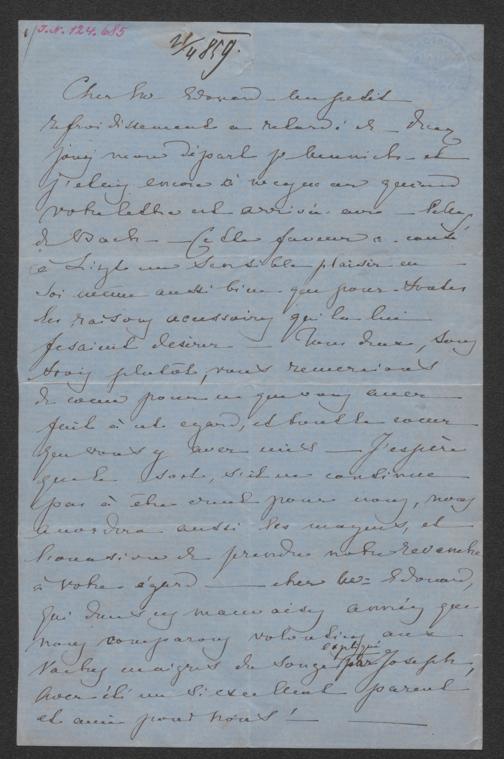 J.N. 124.685
21/4 859.
Cher Mr Edouard – Un petit
refroidissement a retardé de – deux
jours mon départ p. Munich – et
j'étais encore à Weymar quand
votre lettre est arrivée avec –
de Bach – Cette faveur a causé
à Liszt un sensible plaisir en
soi même aussi bien que pour – toutes
les raisons accessoires qui la lui
fesaient désirer – Tous deux,
trois plutôt, vous remercions
de coeur pour ce que vous avez
fait à cet égard, et tout le coeur
que vous y avez mis – J'espère
que le sort, s'il ne continue
pas à être cruel pour nous, nous
accordera aussi les moyens, et
l'occasion de prendre notre revanche
à votre égard – cher Mr Edouard,
qui dans ces mauvaises années que
nous comparons volontiers aux
vaches maigres du songe expliqué par Joseph,
avez été un si excellent parent
et ami pour nous! –